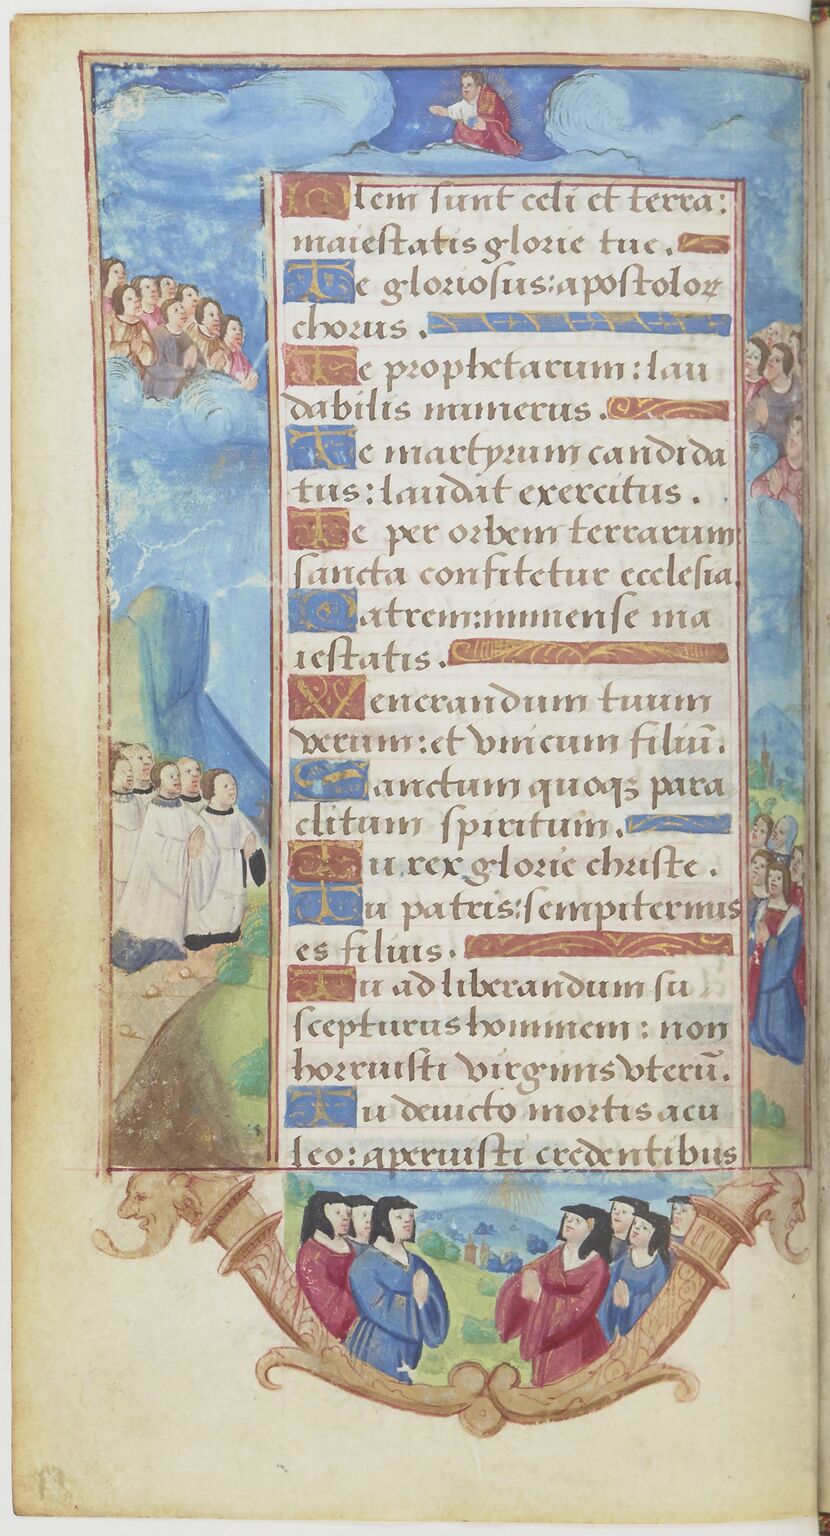 Plem sunt celi et terra:
maiestatis glorie tue.
Te gloriosus: apostoloꝝ
chorus.
Te prophetarum: lau
dabilis numerus.
Te martyrum candida
tus: laudat exercitus.
Te per orbem terrarum:
sancta confitetur ecclesia.
Patrem: immense ma
iestatis.
Venerandum tuum
verum: et vnicum filiū.
Sanctum quoqꝫ para
clitum spiritum.
Tu rex glorie christe.
Tu patris: sempiternus
es filius.
Tu ad liberandum su
scepturus hominem: non
horruisti virginis vterū.
Tu deuicto mortis acu
leo: aperuisti credentibus